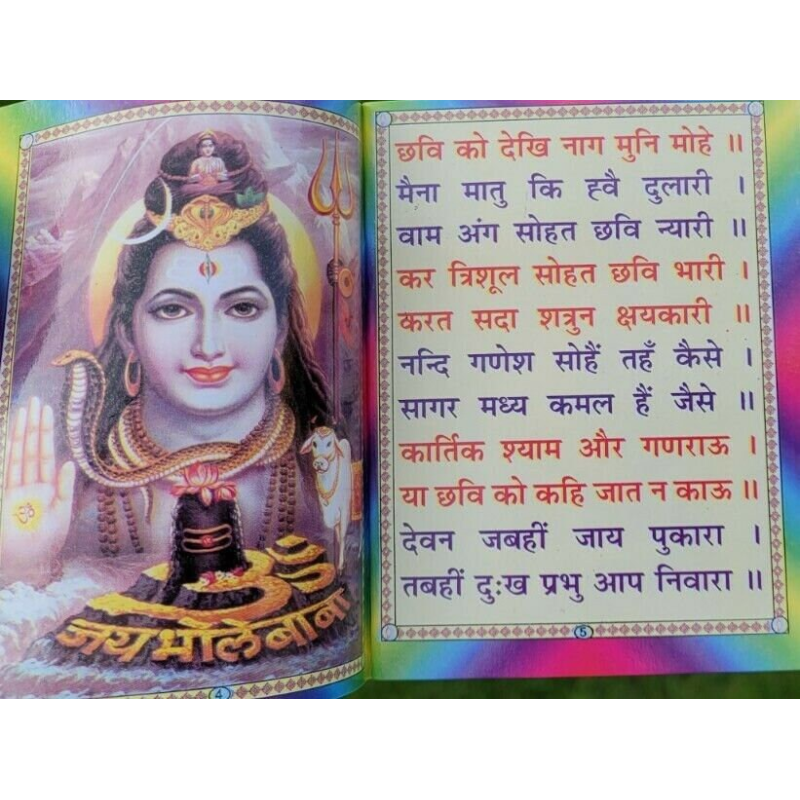 ॐ
ॐ
जय भोले बाबा
4
छवि को देखि नाग मुनि मोहे ॥
मैना मातु कि ह्वै दुलारी ।
वाम अंग सोहत छवि न्यारी ॥
कर त्रिशूल सोहत छवि भारी ।
करत सदा शत्रुन क्षयकारी ॥
नन्दि गणेश सोहैं तहँ कैसे ।
सागर मध्य कमल हैं जैसे ॥
कार्तिक श्याम और गणराऊ ।
या छवि को कहि जात न काऊ ॥
देवन जबहीं जाय पुकारा ।
तबहीं दुःख प्रभु आप निवारा ॥
5